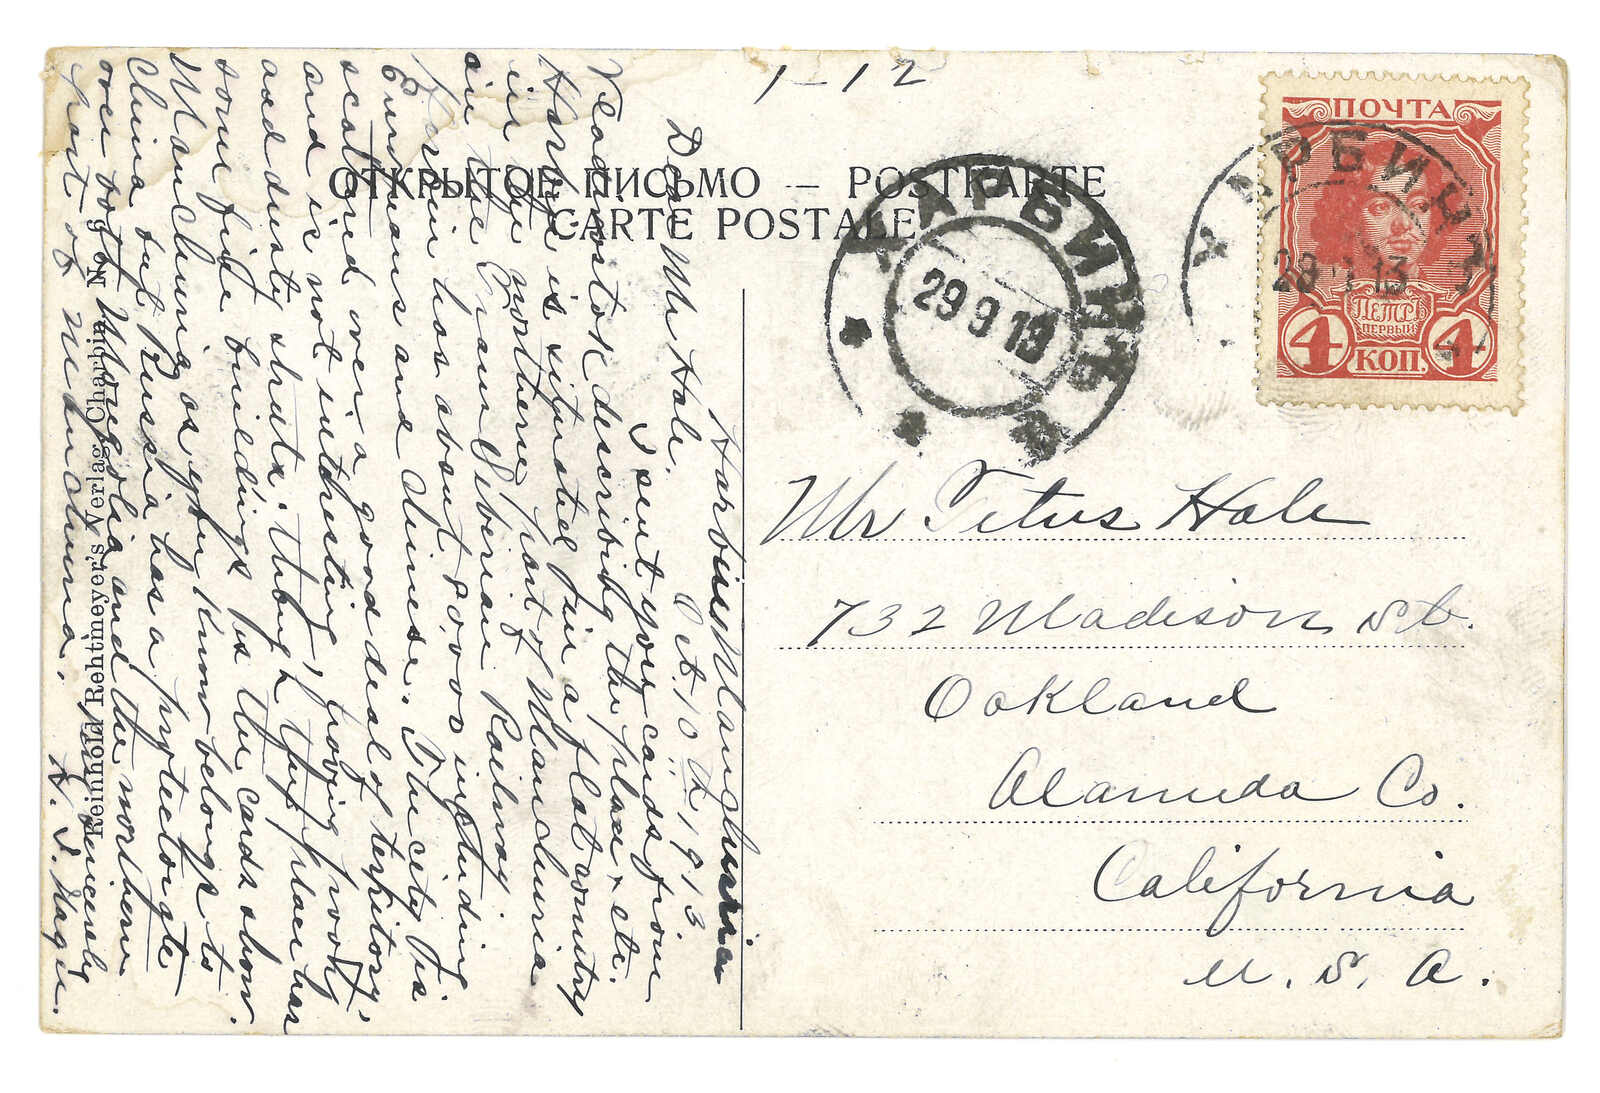 1–12
ОТКРЫТОЕ ПИСЬМО — POSTKARTE
CARTE POSTALE
ПОЧТА
ПЕТРЪ
ПЕРВЫЙ
4 КОП. 4
ХАРБИНЪ
29 9 13
ХАРБИНЪ
28 9 13
Harbin Manchuria
Oct. 10th 1913.
Dear Mr Hale.
I sent you cards from
Vladivostok describing the place & etc.
Harbin is situated in a flat country
in the northern part of Manchuria
on the Trans Siberian Railway.
Harbin has about 80,000 including
Europeans and chinese. The city is
scattered over a good deal of territory,
and is not inthresting, having poor
and dusty streets. though the place has
some fine buildings as the cards show.
Manchuria as you know belongs to
China but Russia has a protectorate
over both Mongolia and the northern
part of Manchuria.
Yours Sincerely
H. S. Magee.
Reinhold Rehtmeyer's Verlag Charbin. No. 3
Mr Titus Hale
732 Madison St.
Oakland
Alameda Co.
California
U. S. A.